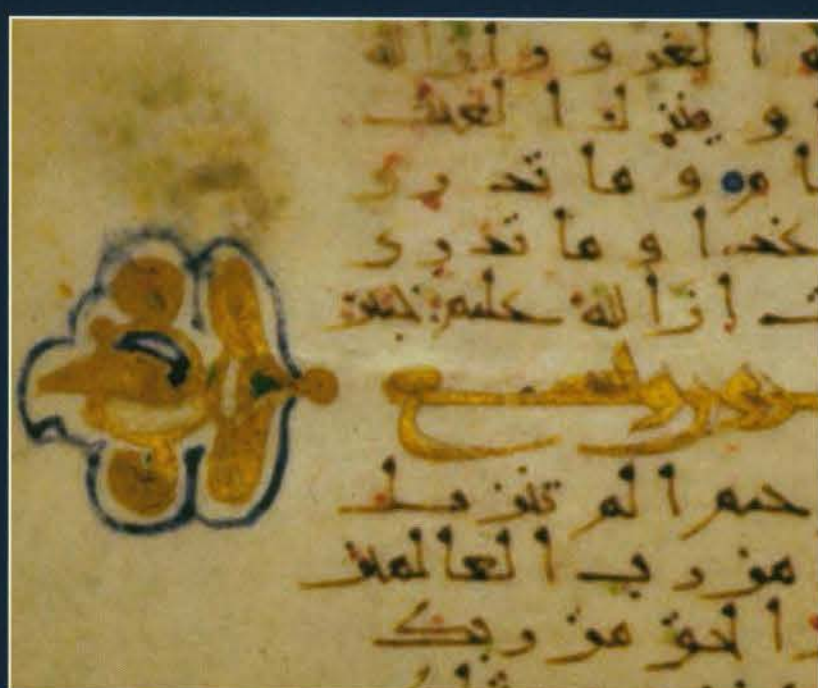 الغرور ان الله
و ينزل الغيث
ام و ما تدري
غدا و ما تدري
ت ان الله عليم خبير
حيم الم تنزيل
من رب العالمين
الحق من ربك